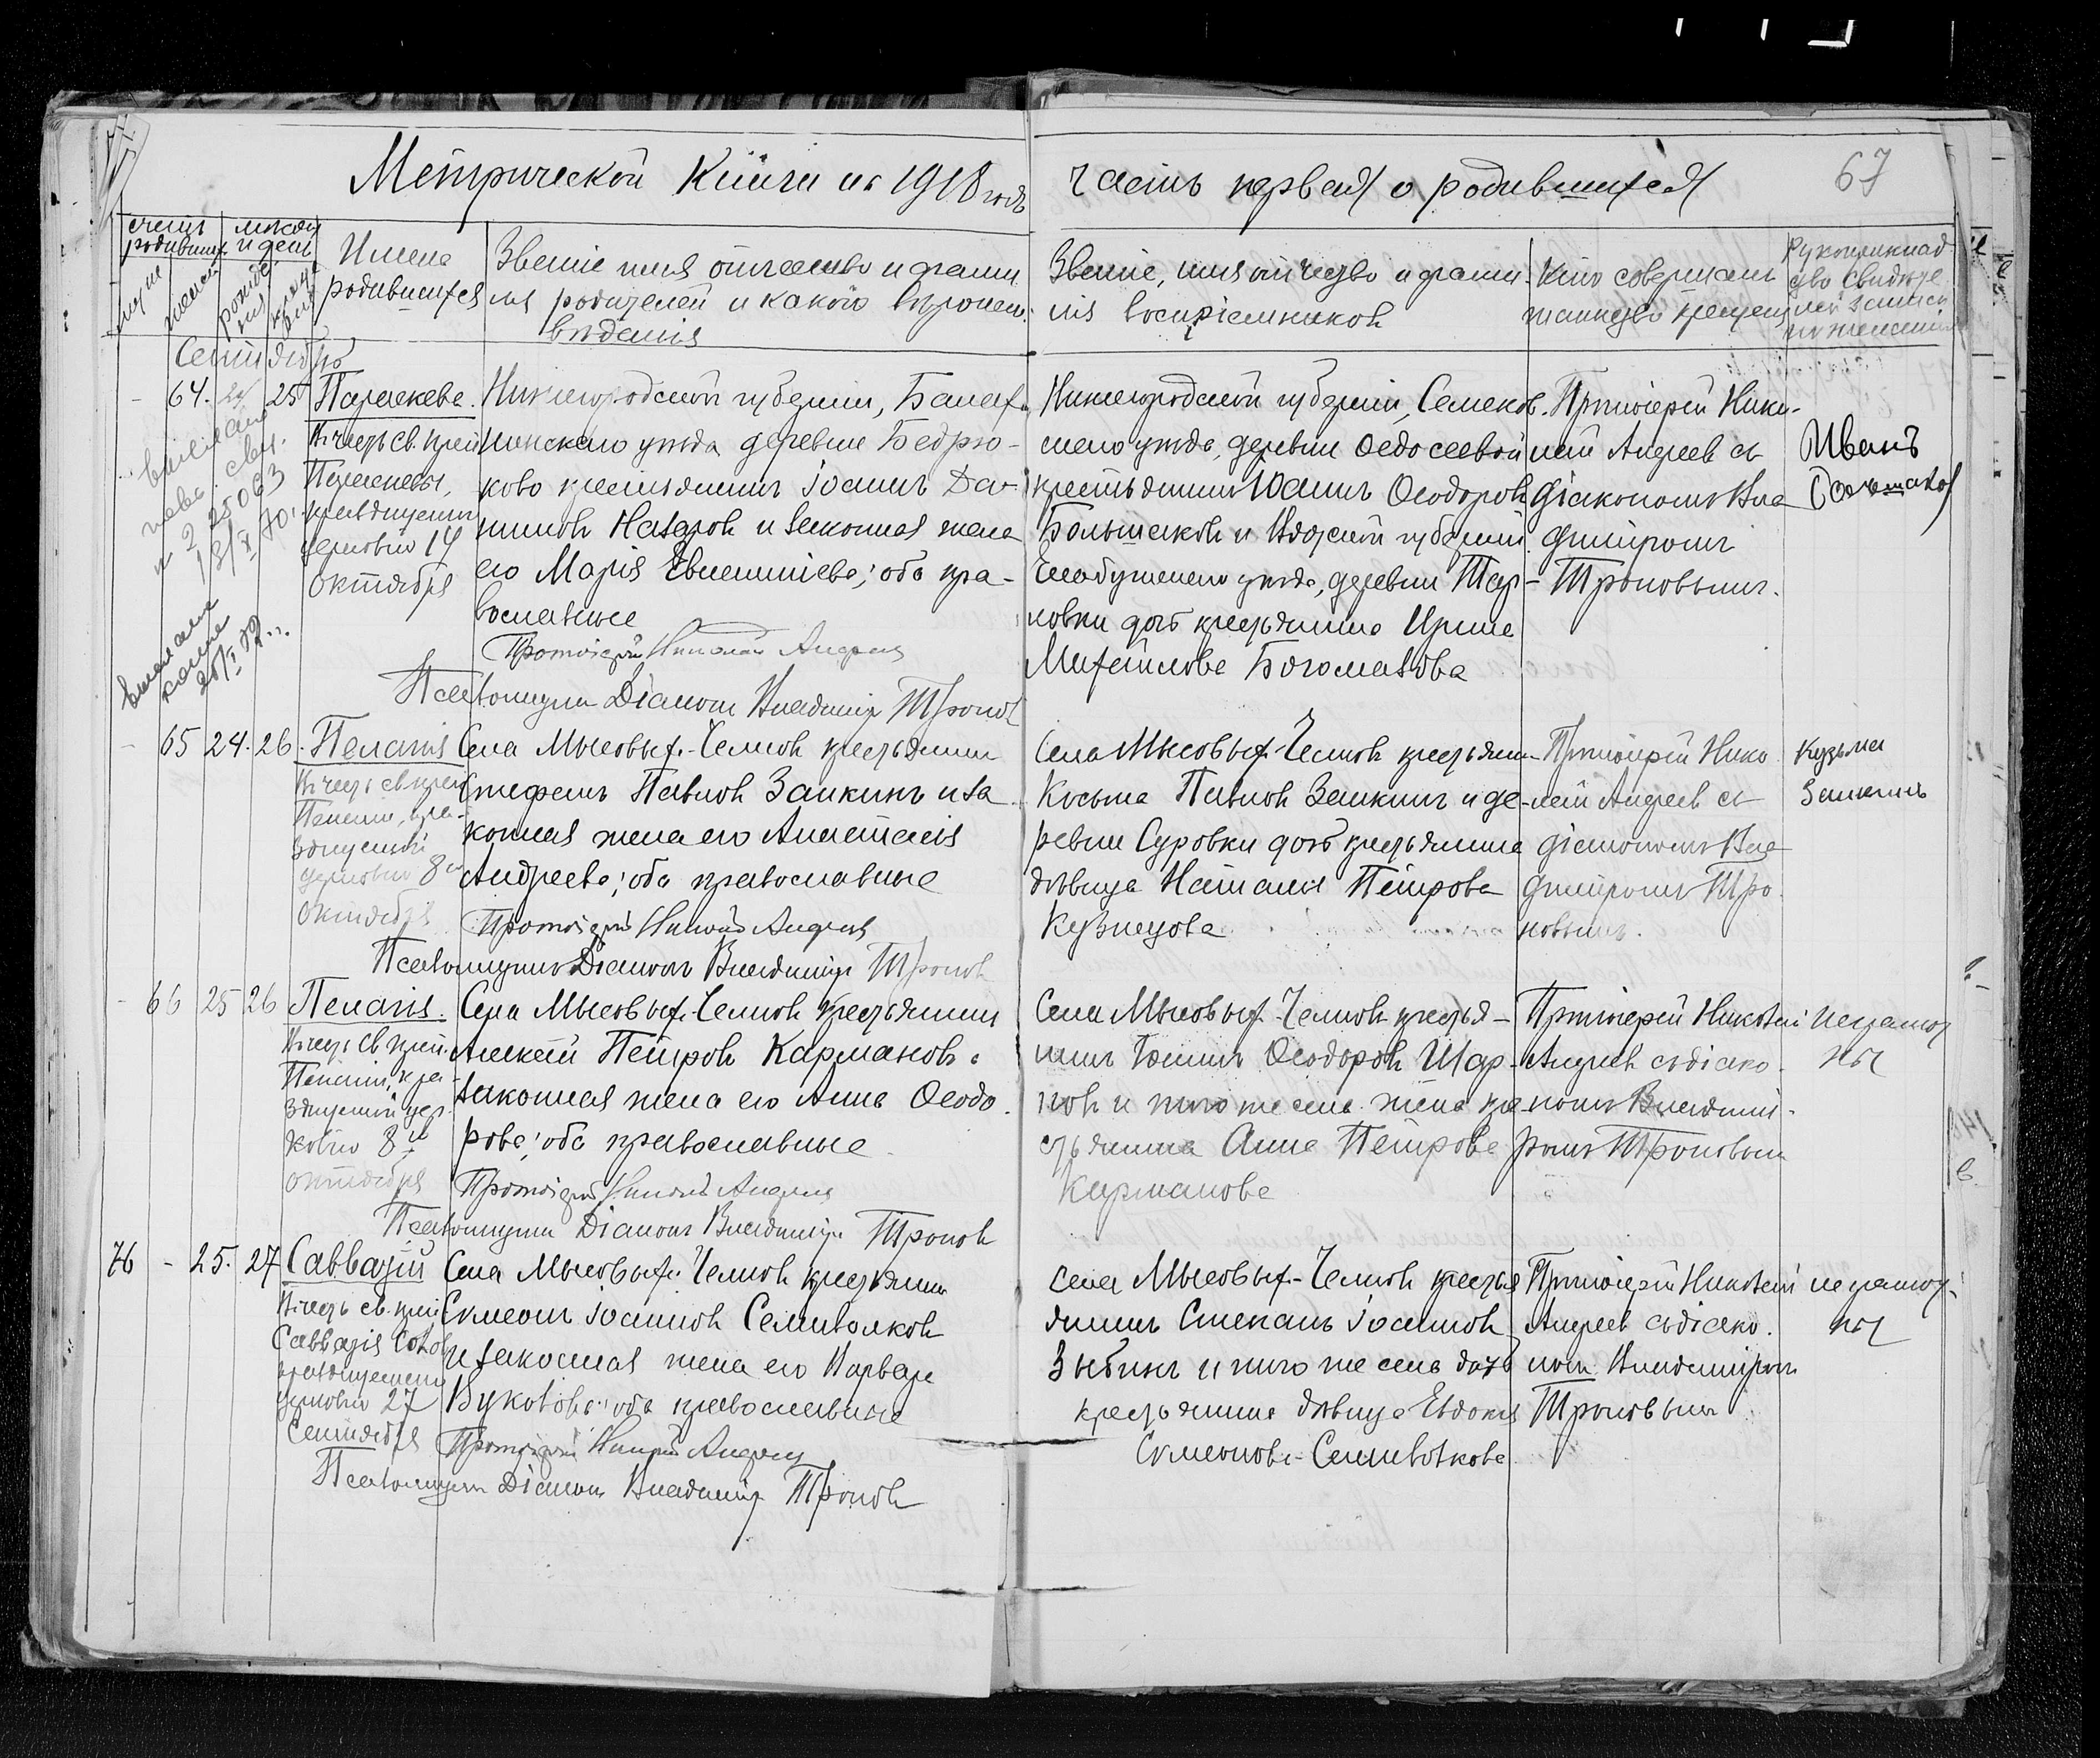 Метрической Книги на 1918 годъ
часть первая о родившихся
67
счетъ родившихся
мѣсяц и день
муж
женск
рожде нія
креще нія
Имена
родившихся
Званіе имя отчество и фами
лія родителей и какого вѣроисп
вѣданія
Званіе, имя отчество и фами
лія воспріемниковъ
Кто совершалъ
таинство крещенія
Рукоприклад
ство свидѣте
лей записи
по желанію
Сентябрь
64. 24 25
Параскева.
В честь св. преп
Параскевы,
празднуемой
церковію 14
Октября
Нижегородской губерніи, Балах
нинскаго уѣзда деревни Бедрю-
ково крестьянинъ Іоаннъ Да-
ниловъ Назаровъ и законная жена
его Марія Евлампіева; оба пра-
вославные
Протоіерей Николай Андреев
Псаломщикъ Діаконъ Владиміръ Троновъ
Нижегородской губерніи, Семенов.
скаго уѣзда, деревни Ѳедосеевой
крестьянинъ Іоаннъ Ѳеодоровъ
Большаковъ и Вятской губерніи
Елабужскаго уѣзда, деревни Тар-
ловки дочь крестьянина Ирина
Михайлова Богомазова
Протоіерей Нико-
лай Андреев съ
діакономъ Вла
диміромъ
Троновымъ.
Иванъ
Большаков
выслано
свид.
2 25063
13/X 70
выслана
копия
26/I
65 24. 26.
Пелагія
В честь св. преп
Пелагіи, пра-
зднуемой
церковію 8го
Октября
Села Мысовыхъ-Челновъ крестьянин
Стефанъ Павловъ Заикинъ и за
конная жена его Анастасія
Андреева; оба православные
Протоіерей Николай Андреев
Псаломщикъ Діаконъ Владиміръ Троновъ
Села Мысовыхъ-Челновъ крестьянин
Косьма Павловъ Заикинъ и де-
ревни Суровки дочь крестьянина
дѣвица Наталія Петрова
Кузнецова
Протоіерей Нико
лай Андреев съ
діакономъ Вла
диміромъ Тро
новымъ.
Кузьма
Заикинъ
66 25 26
Пелагія.
В честь св. преп.
Пелагіи, пра-
зднуемой цер
ковію 8го
октября
Села Мысовыхъ-Челновъ крестьянин
Алексѣй Петровъ Кармановъ и
законная жена его Анна Ѳеодо
рова; оба православные
Протоіерей Николай Андреев
Псаломщикъ Діаконъ Владиміръ Троновъ
Села Мысовыхъ-Челновъ крестья-
нинъ Іоаннъ Ѳеодоровъ Шар-
повъ и того же села жена кре
стьянина Анна Петрова
Карманова
Протоіерей Николай
Андреев съ діако
номъ Владимі-
ромъ Троновым
неграмот
ны
76 - 25. 27
Савватій
В честь св. преп
Савватія Солов
празднуемого
церковію 27
Сентября
Села Мысовыхъ-Челновъ крестьянин
Симеонъ Іоанновъ Семиволковъ
и законная жена его Варвара
Вуколова; оба православные
Протоіерей Николай Андреев
Псаломщикъ Діаконъ Владиміръ Троновъ
Села Мысовыхъ-Челновъ крестья
янинъ Степанъ Іоанновъ
Зыбинъ и того же села дочь
крестьянина дѣвица Евдокія
Симеонова Семиволкова
Протоіерей Николай
Андреев съ діако
номъ Владиміромъ
Троновымъ
неграмот-
ны